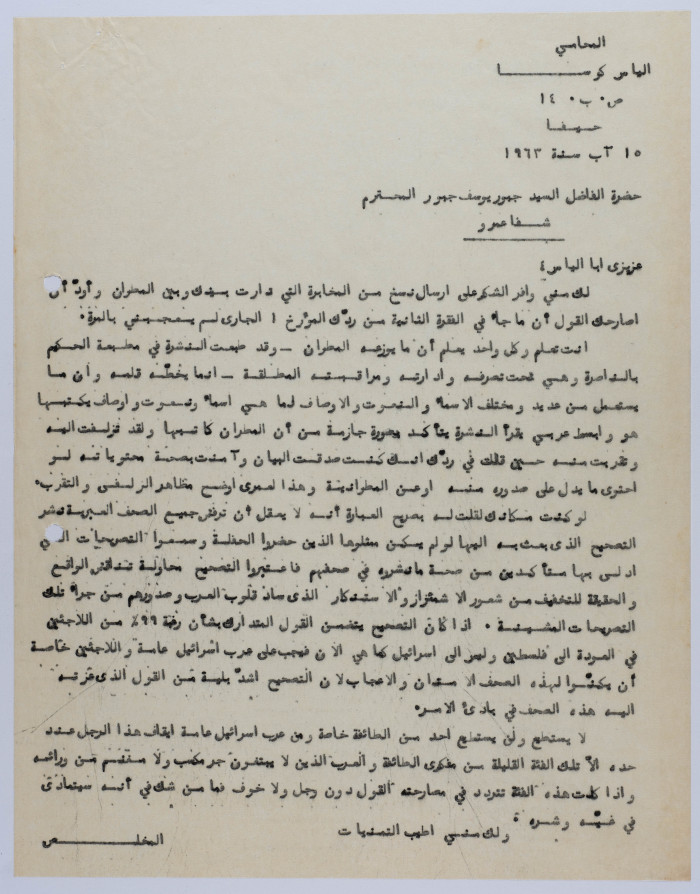 المحامي
الياس كوسا
ص٠ب٠ ١٤٠
حيفا
١٥ آب سنة ١٩٦٣
حضرة الفاضل السيد جبور يوسف جبور المحترم
شفاعمرو
عزيزى ابا الياس ٤
لك مني وافر الشكر على ارسال نسخ من المخابرة التي دارت بينك وبين المطران وأودّ أن
اصارحك القول أن ما جاء في الفقرة الثانية من ردّك المؤرخ ١ الجارى لم يعجبني بالمرة٠
انت تعلم وكل واحد يعلم أن ما يوزعه المطران – وقد طبعت النشرة في مطبعة الحكيم
بالناصرة وهي تحت تصرفه وادارته ومراقبته المطلقة – انما يخطّه قلمه وأن ما
يستعمل من عديد ومختلف الاسماء والنعوت والاوصاف لما هي اسماء ونعوت واوصاف يكتبها
هو وابسط عربي يقرأ النشرة يتأكد بصورة جازمة من أن المطران كاتبها ولقد تزلفت اليه
وتقربت منه حين قلت في ردّك انك كنت صدقت البيان وآمنت بصحة محتوياته لو
احتوى ما يدل على صدوره منه او عن المطرانية وهذا لعمرى اوضح مظاهر الزلفى والتقرب٠
لو كنت مكانك لقلت له بصريح العبارة أنه لا يعقل أن ترفض جميع الصحف العبرية نشر
التصحيح الذى بعث به اليها لو لم يكن ممثلوها الذين حضروا الحفلة وسمعوا التصريحات التي
ادلى بها متأكدين من صحة ما نشروه في صحفهم فاعتبروا التصحيح محاولة تناقض الواقع
والحقيقة للتخفيف من شعور الاشمئزاز والاستنكار الذى ساد قلوب العرب وصدورهم من جراء تلك
التصريحات المشينة ٠ اذا كان التصحيح يتضمن القول المتدارك بشأن رغبة ٩٩٪ من اللاجئين
في العودة الى فلسطين وليس الى اسرائيل كما هي الآن فيجب على عرب اسرائيل عامة واللاجئين خاصّة
أن يكنّوا لهذه الصحف الامتنان والاعجاب لان التصحيح اشدّ بلية من القول الذى عزته
اليه هذه الصحف في بادئ الامر٠
لا يستطيع ولن يستطيع احد من الطائفة خاصة ومن عرب اسرائيل عامة ايقاف هذا الرجل عند
حده الاّ تلك الفئة القليلة من مفكرى الطائفة والعرب الذين لا يبتغون جر مكسب ولا مغنم من ورائه
واذا كانت هذه الفئة تتردد في مصارحته القول دون وجل ولا خوف فما من شك في أنه سيتمادى
في غيّه وشره ٠
ولك مني اطيب التمنيات
المخلص